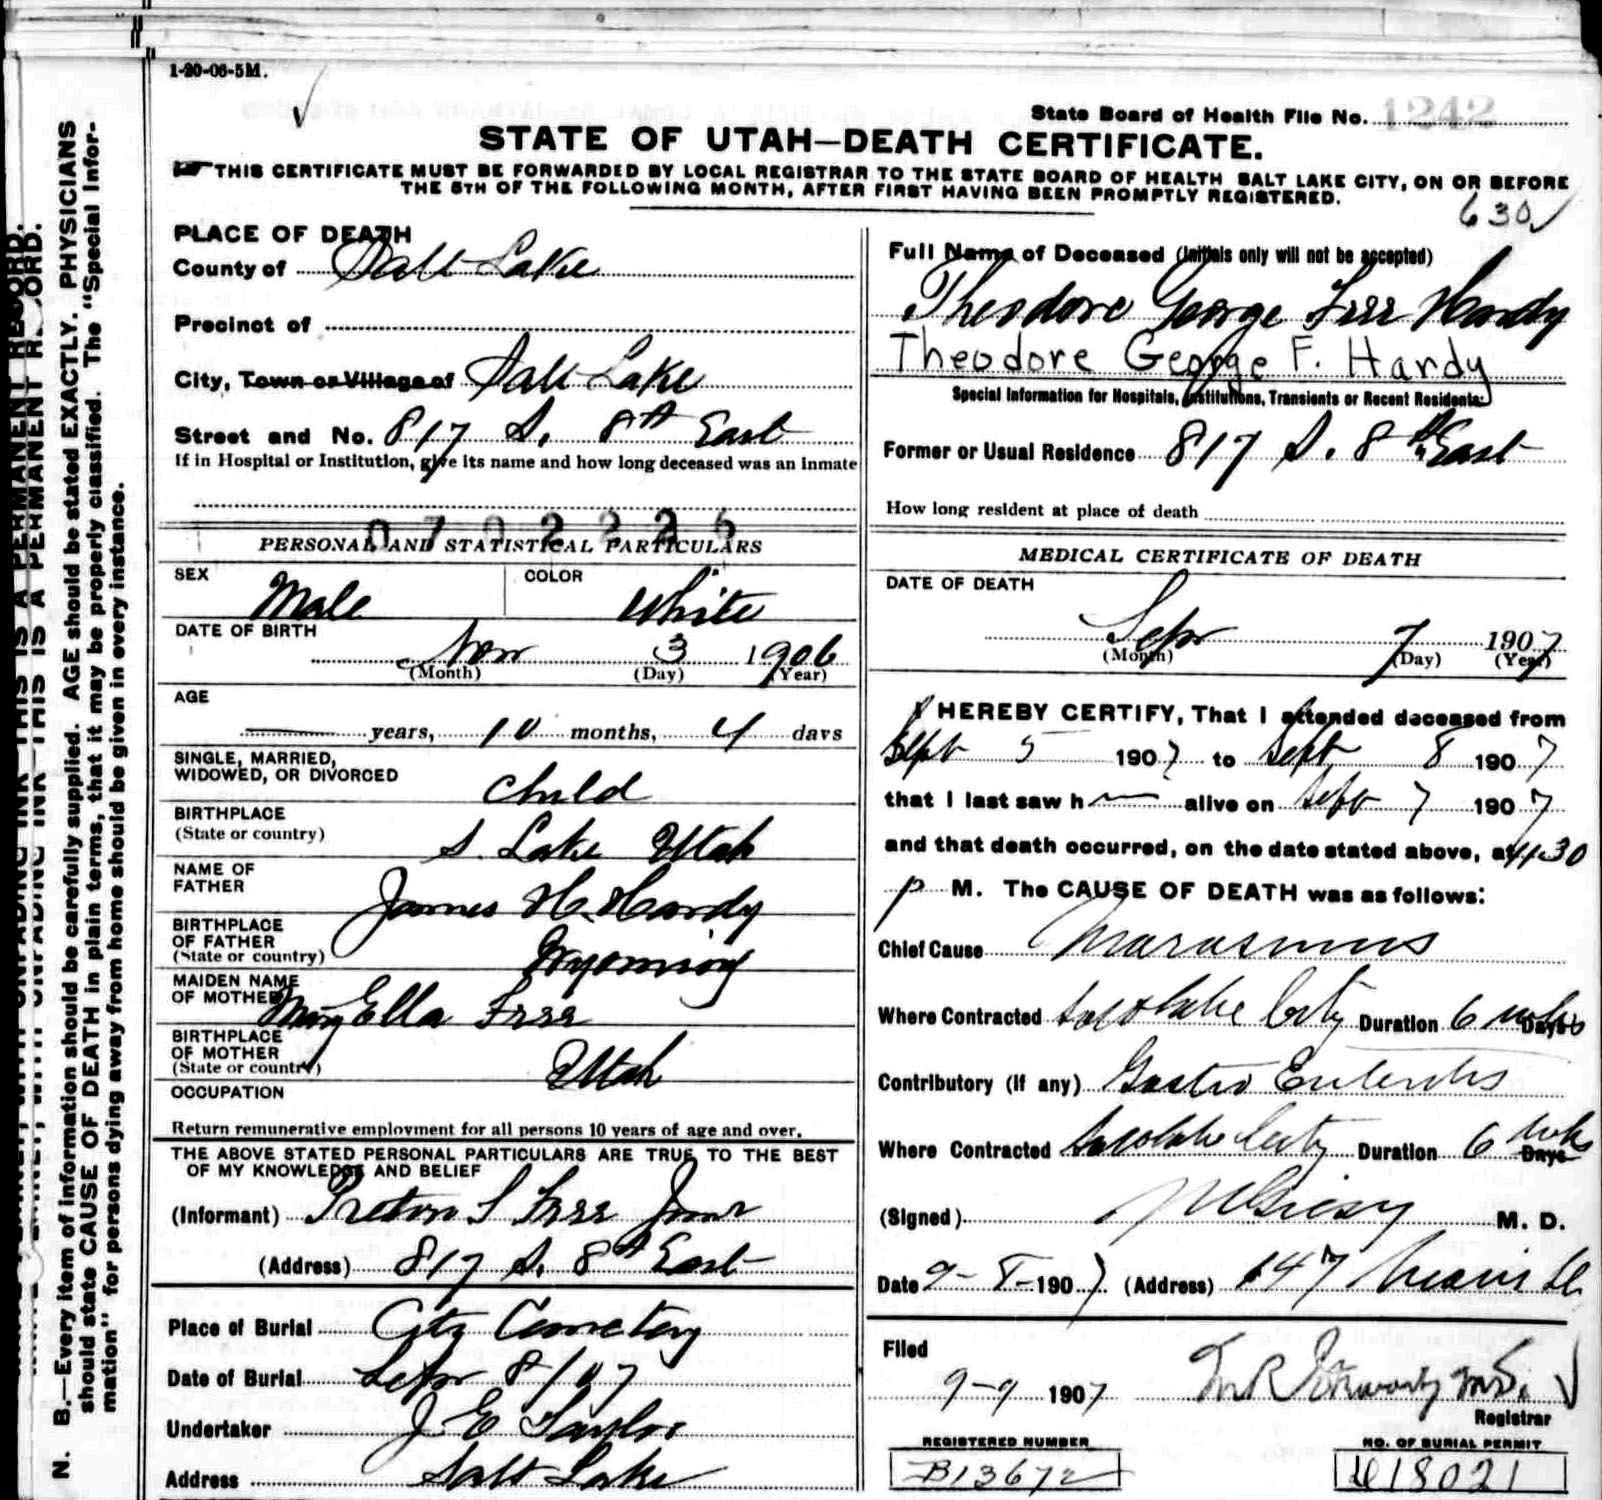 1-20-06-5M.
State Board of Health File No. 1242
STATE OF UTAH—DEATH CERTIFICATE.
THIS CERTIFICATE MUST BE FORWARDED BY LOCAL REGISTRAR TO THE STATE BOARD OF HEALTH SALT LAKE CITY, ON OR BEFORE
THE 5TH OF THE FOLLOWING MONTH, AFTER FIRST HAVING BEEN PROMPTLY REGISTERED.
630
N. B.—Every item of information should be carefully supplied. AGE should be stated EXACTLY. PHYSICIANS
should state CAUSE OF DEATH in plain terms, that it may be properly classified. The "Special Infor-
mation" for persons dying away from home should be given in every instance.
THIS IS A PERMANENT RECORD.
PLACE OF DEATH
County of Salt Lake
Precinct of
City, Town or Village of Salt Lake
Street and No. 817 S. 8th East
If in Hospital or Institution, give its name and how long deceased was an inmate
0702226
PERSONAL AND STATISTICAL PARTICULARS
SEX Male COLOR White
DATE OF BIRTH
Nov 3 1906
(Month) (Day) (Year)
AGE
years, 10 months, 4 days
SINGLE, MARRIED,
WIDOWED, OR DIVORCED
Child
BIRTHPLACE
(State or country)
S. Lake Utah
NAME OF
FATHER
James H. Hardy
BIRTHPLACE
OF FATHER
(State or country)
Wyoming
MAIDEN NAME
OF MOTHER
Mary Ella Frss
BIRTHPLACE
OF MOTHER
(State or country)
Utah
OCCUPATION
Return remunerative employment for all persons 10 years of age and over.
THE ABOVE STATED PERSONAL PARTICULARS ARE TRUE TO THE BEST
OF MY KNOWLEDGE AND BELIEF
(Informant)
(Address) 817 S. 8th East
Place of Burial City Cemetery
Date of Burial Sepr 8/07
Undertaker J E Taylor
Address Salt Lake
Full Name of Deceased (Initials only will not be accepted)
Theodore George Hardy
Theodore George F. Hardy
Special Information for Hospitals, Institutions, Transients or Recent Residents:
Former or Usual Residence 817 S. 8th East
How long resident at place of death
MEDICAL CERTIFICATE OF DEATH
DATE OF DEATH
Sepr 7 1907
(Month) (Day) (Year)
I HEREBY CERTIFY, That I attended deceased from
Sept 5 1907 to Sept 8 1907
that I last saw h alive on Sept 7 1907
and that death occurred, on the date stated above, at 4.30
p M. The CAUSE OF DEATH was as follows:
Chief Cause Marasmus
Where Contracted Salt Lake City Duration 6 wks Days
Contributory (If any) Gastro Enteritis
Where Contracted Salt Lake City Duration 6 wks Days
(Signed) M. D.
Date 9-8-1907 (Address) 147 Main St
Filed
9-9 1907
Registrar
REGISTERED NUMBER
B13672
NO. OF BURIAL PERMIT
18021